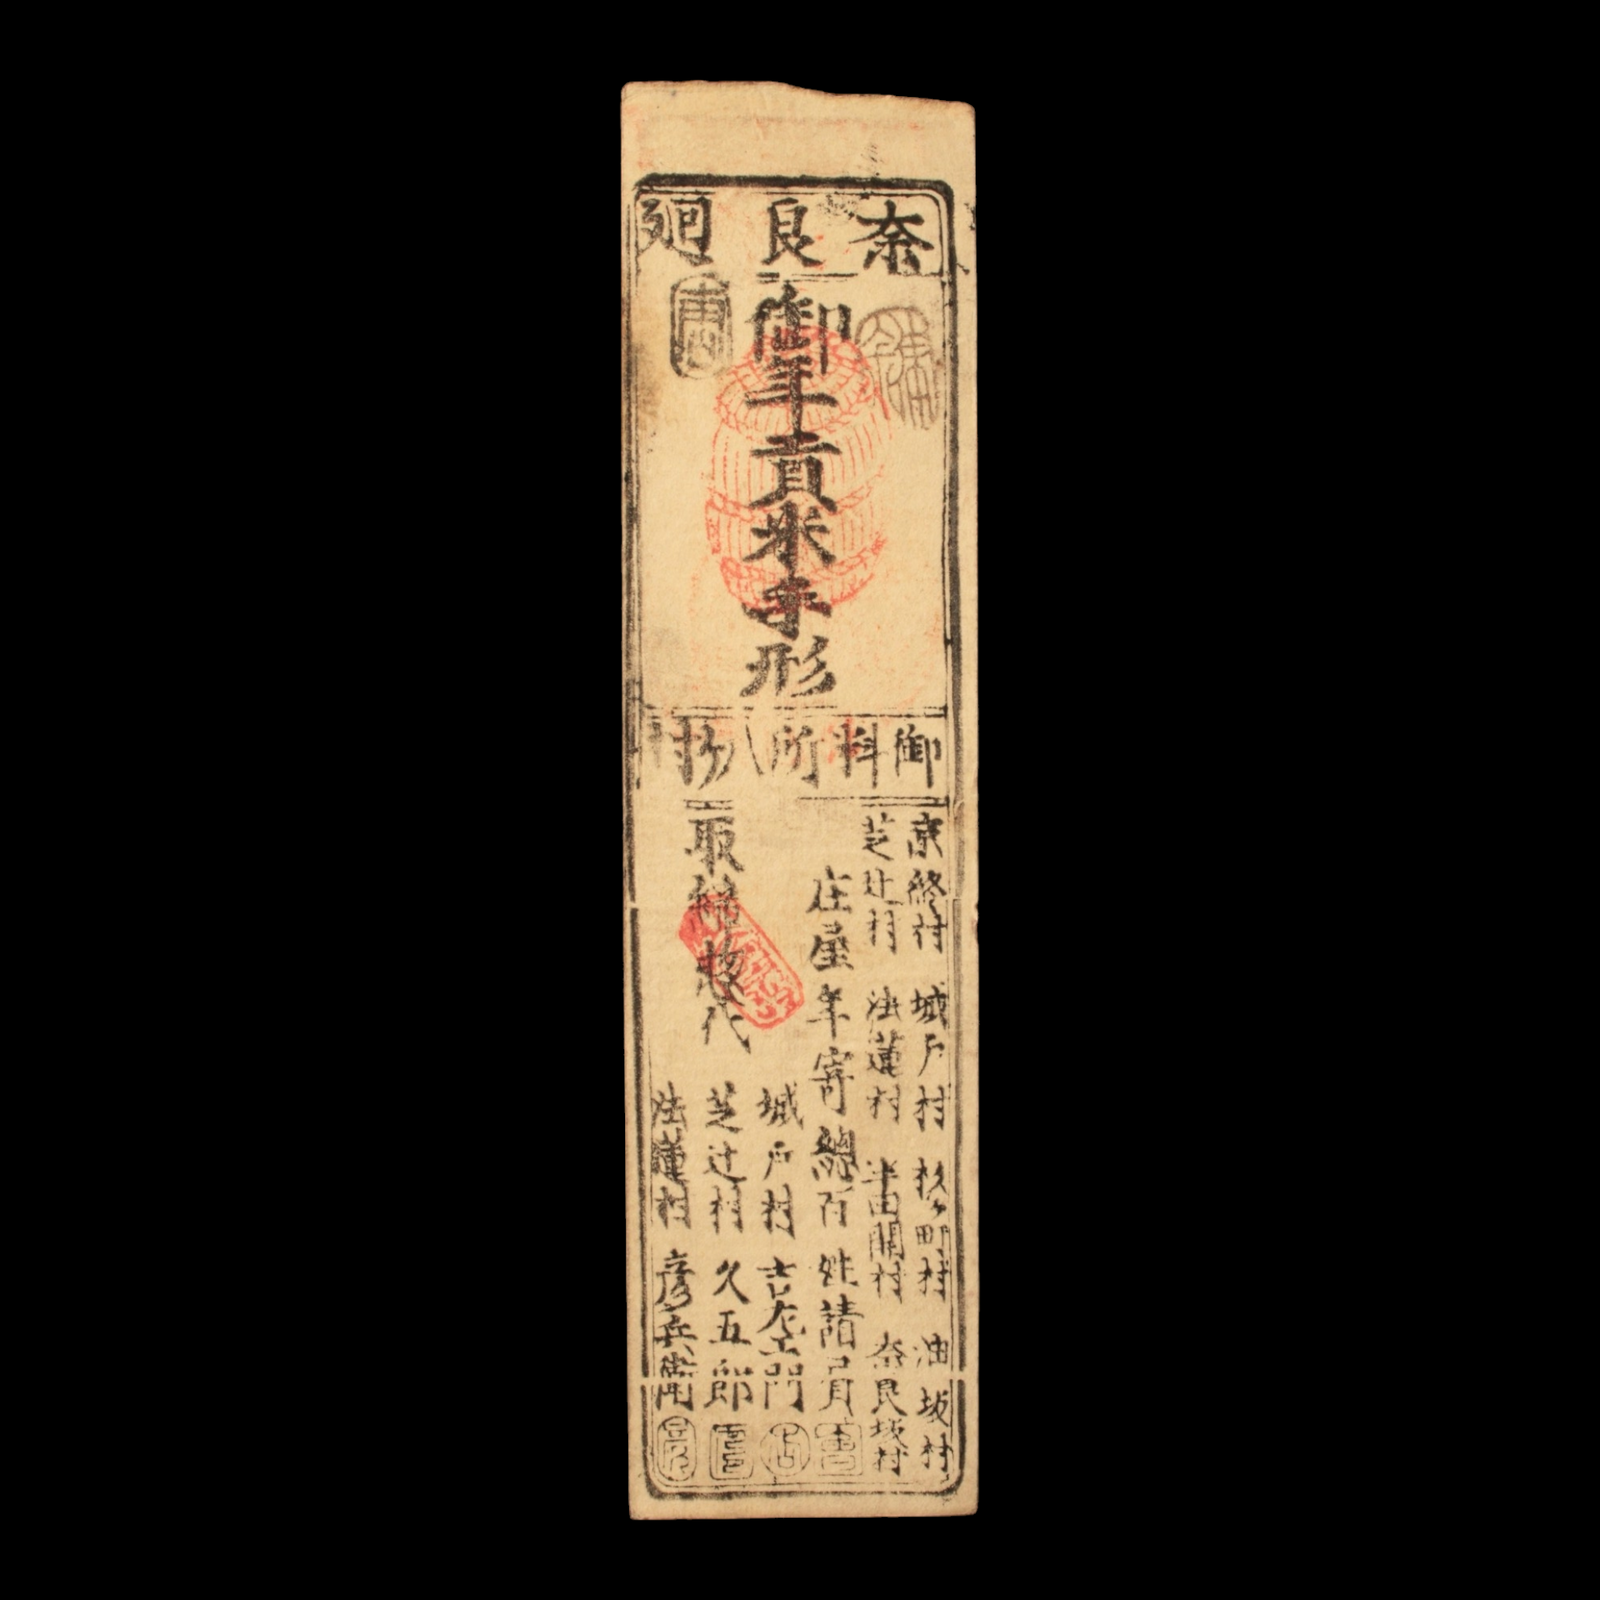 奈良廻
御年貢米手形
御料所八ヶ村
京終村 城戸村 杉ヶ町村 油坂村
芝辻村 法蓮村 半田開村 奈良坂村
庄屋年寄總百姓請負
取締惣代
城戸村 吉左エ門
芝辻村 久五郎
法蓮村 彦兵衛